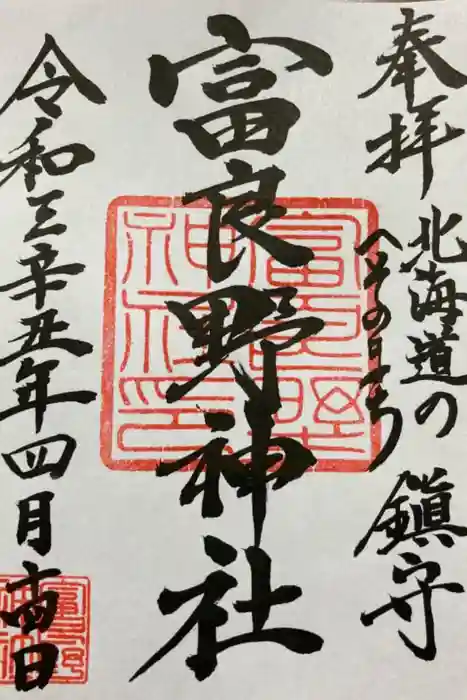 奉拝
北海道の
へそのまち
鎮守
富良野神社
富良野
神社印
令和三辛丑年四月十四日